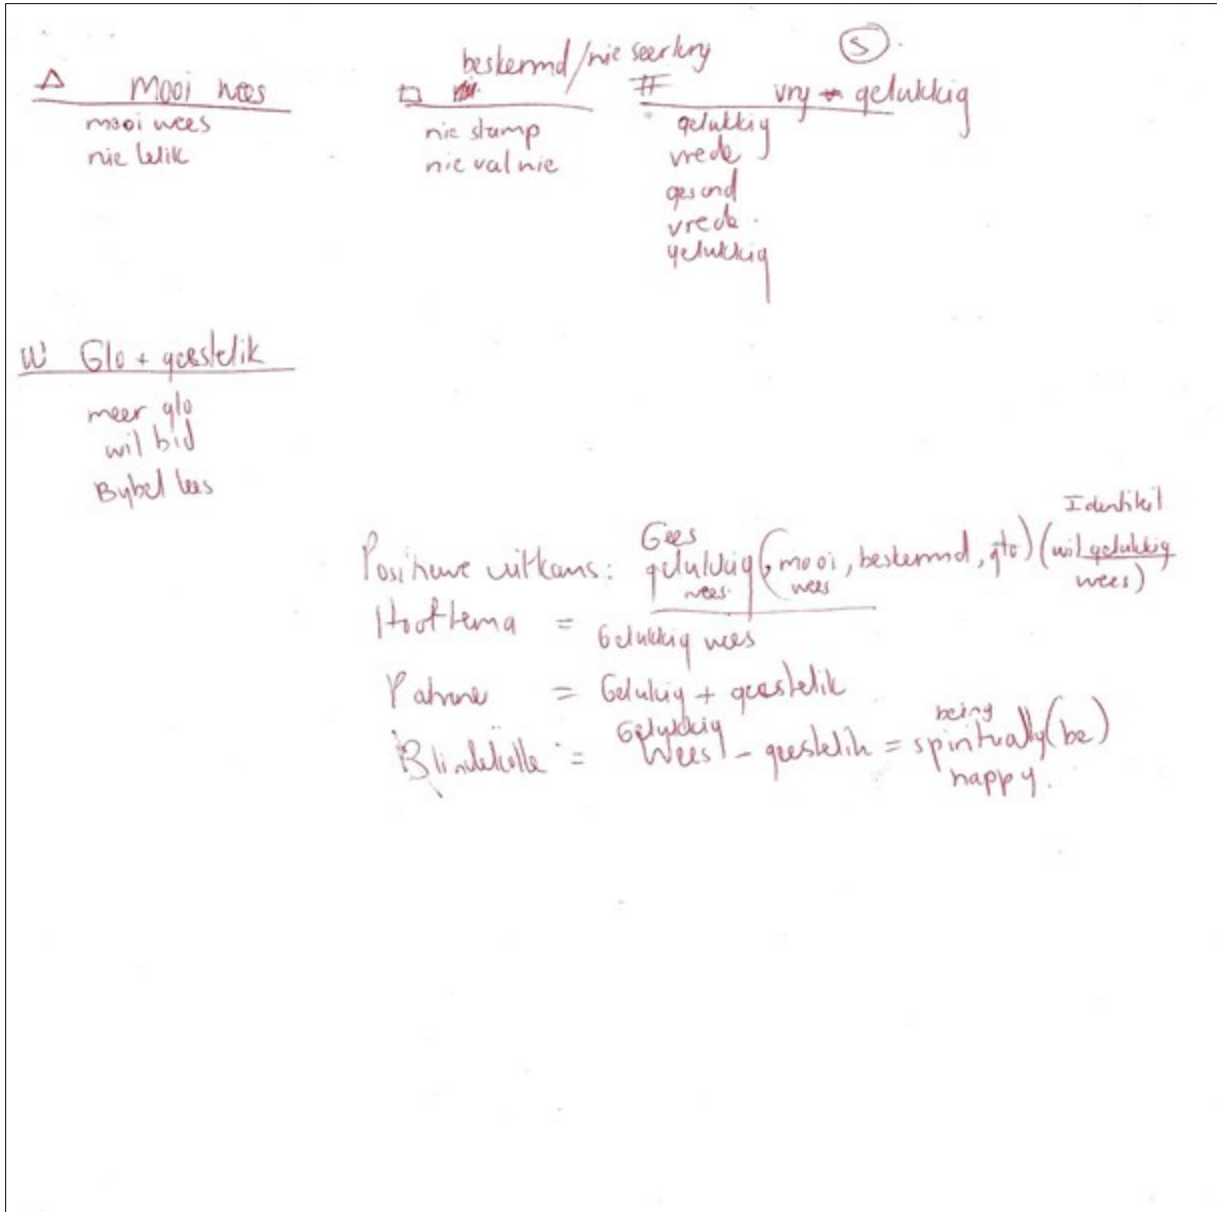 (S)
△ Mooi wees
mooi wees
nie lelik
□ beskermd/nie seerkry
nie stamp
nie val nie
# vry + gelukkig
gelukkig
vrede
gesond
vrede
gelukkig
W Glo + geestelik
meer glo
wil bid
Bybel lees
Gees
Identiteit
Positiewe uitkoms: gelukkig wees (mooi wees, beskermd, glo) (wil gelukkig wees)
Hooftema = Gelukkig wees
Patrone = Gelukkig + geestelik
Blindekolle = Gelukkig Wees - geestelik = being spiritually (be) happy.